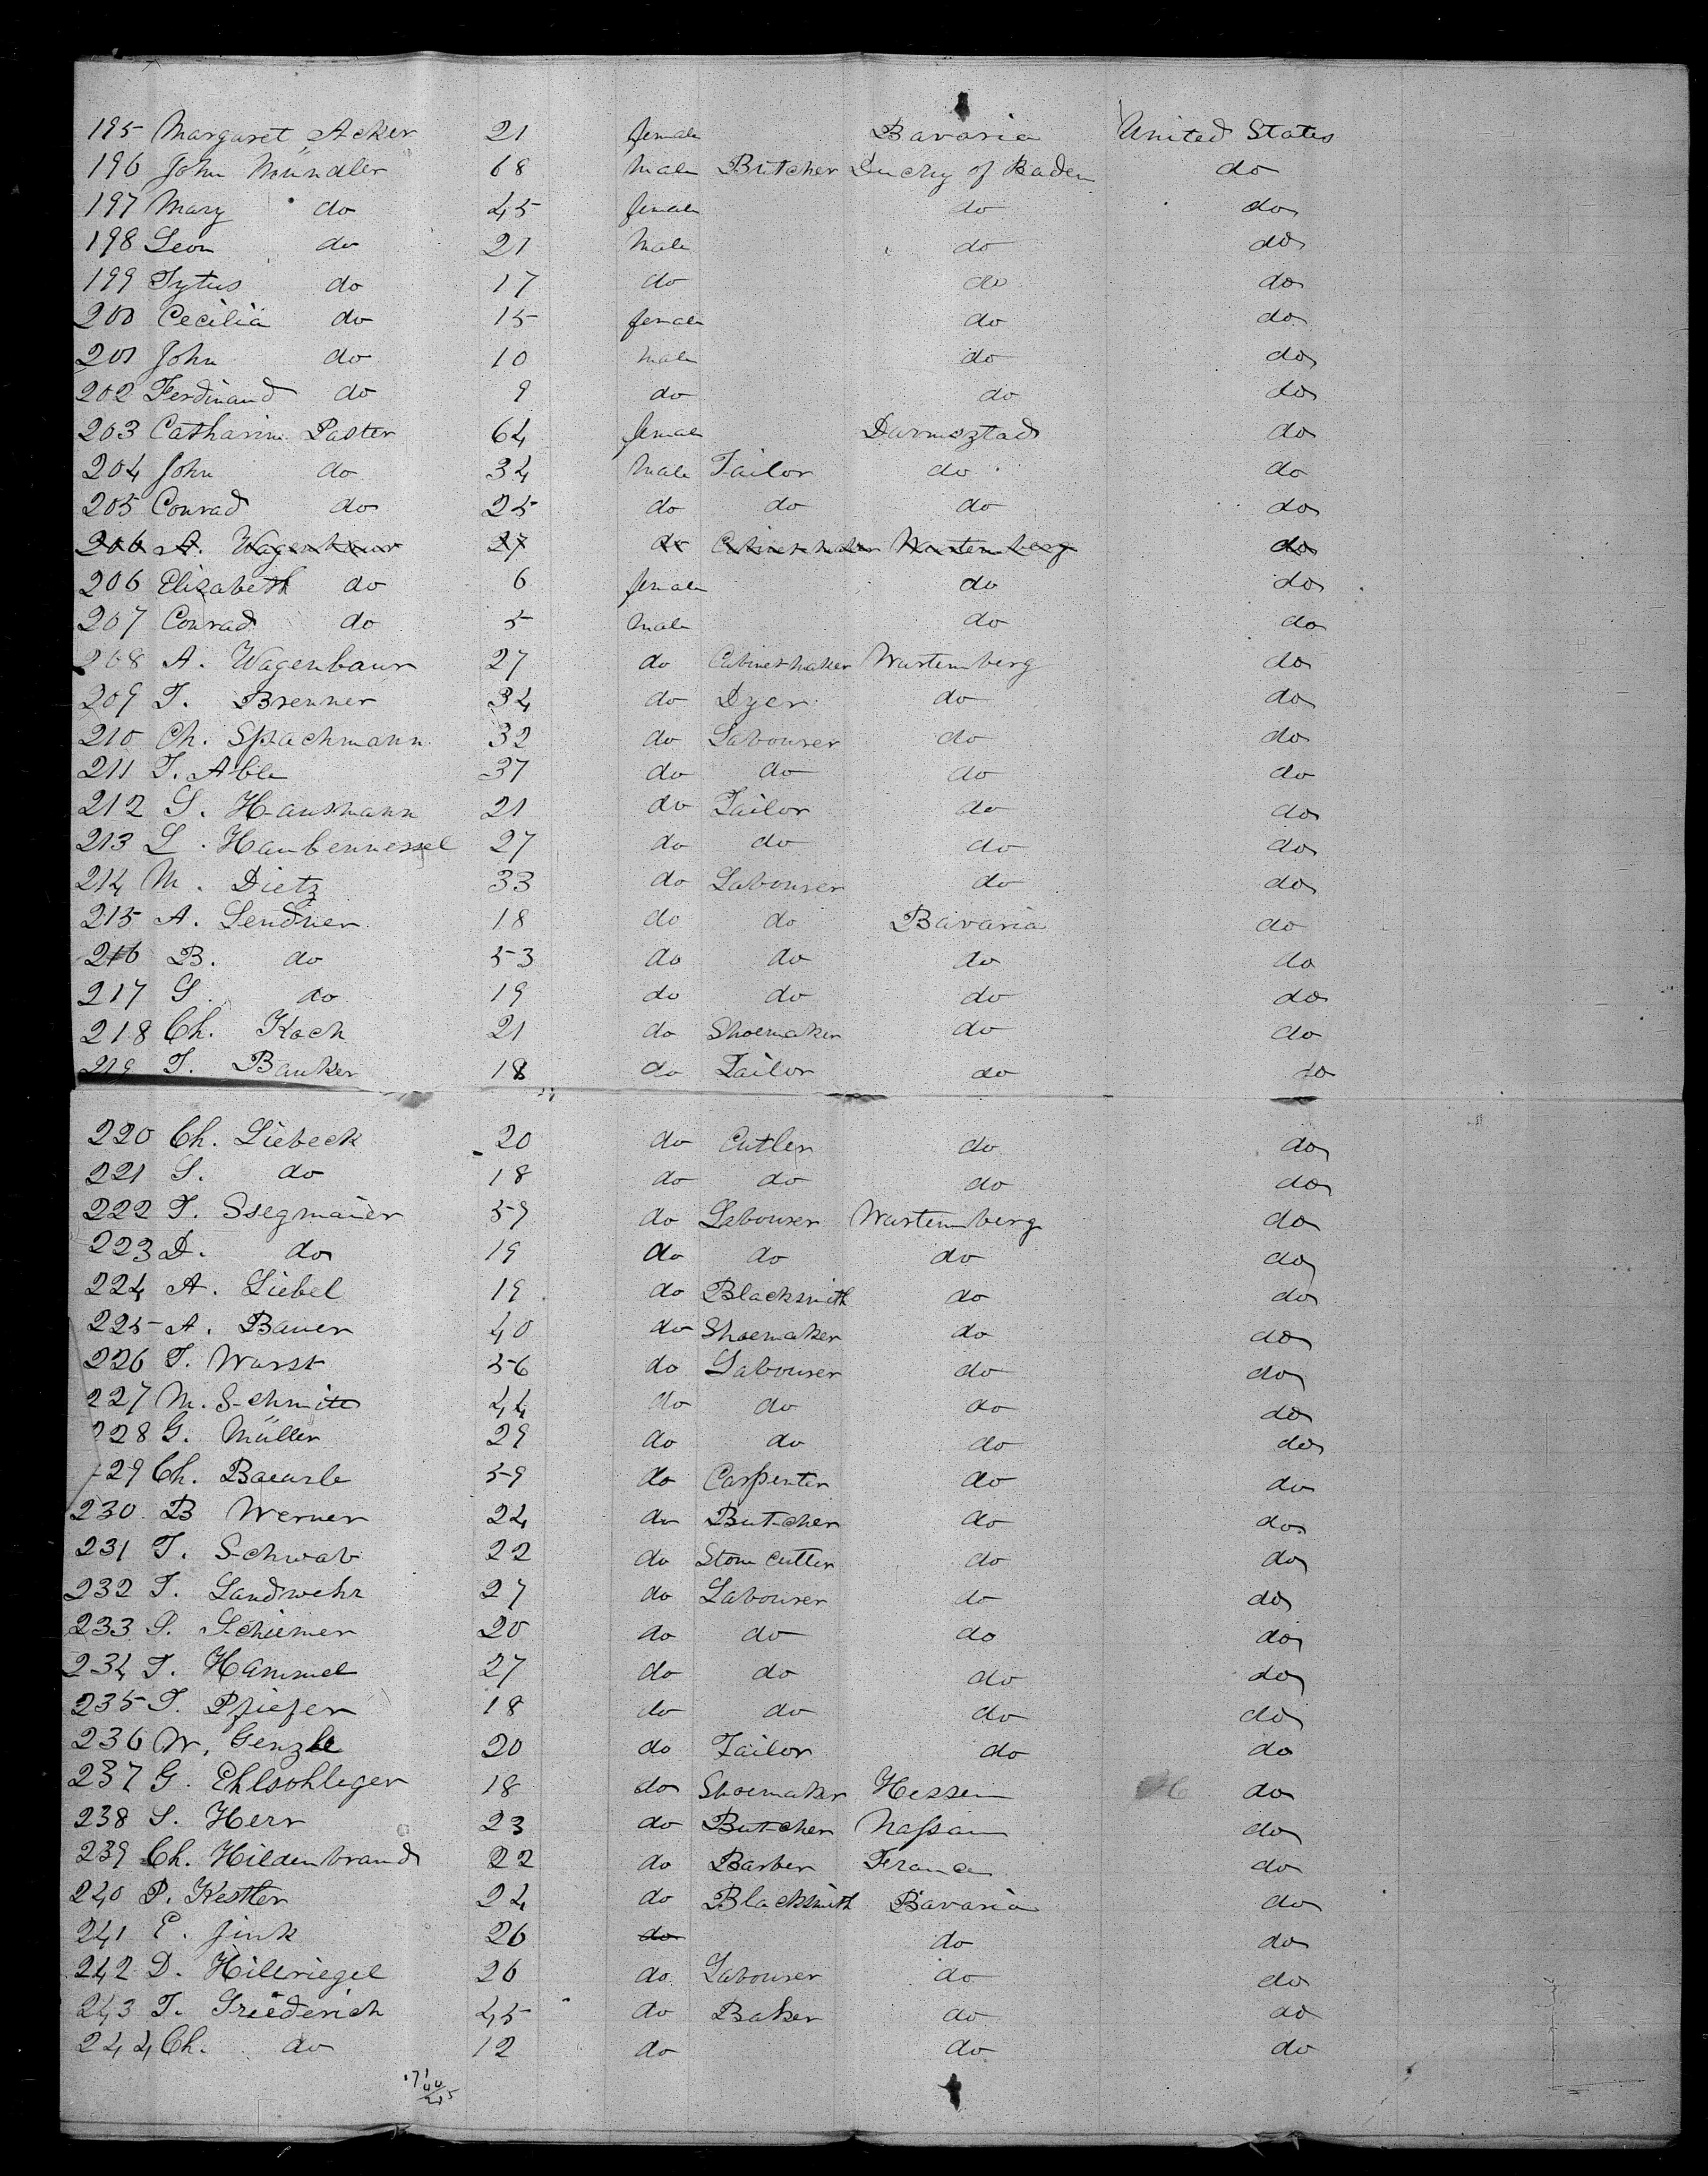 195 Margaret Acker 21 female Bavaria United States
196 John Mündler 68 male Butcher Duchy of Baden do
197 Mary do 45 female do do
198 Leon do 21 male do do
199 Tytus do 17 do do do
200 Cecilia do 15 female do do
201 John do 10 male do do
202 Ferdinand do 9 do do do
203 Catharine Paster 64 female Darmsztad do
204 John do 34 male Tailor do do
205 Conrad do 25 do do do do
206 A. Wagenbaur 27 do Cabinet maker Wurtemberg do
206 Elizabeth do 6 female do do
207 Conrad do 5 male do do
208 A. Wagenbaur 27 do Cabinet maker Wurtemberg do
209 T. Brenner 34 do Dyer do do
210 Ch. Spachmann 32 do Labourer do do
211 T. Able 37 do do do do
212 S. Hausmann 21 do Tailor do do
213 L. Haubennessel 27 do do do do
214 M. Dietz 33 do Labourer do do
215 A. Lendner 18 do do Bavaria do
216 B. do 53 do do do do
217 S. do 19 do do do do
218 Ch. Koch 21 do Shoemaker do do
219 T. Banker 18 do Tailor do do
220 Ch. Liebeck 20 do Cutler do do
221 S. do 18 do do do do
222 T. Ssegmaier 59 do Labourer Wurtemberg do
223 D. do 19 do do do do
224 A. Liebel 19 do Blacksmith do do
225 A. Bauer 40 do Shoemaker do do
226 T. Wurst 56 do Labourer do do
227 M. Schmitt 44 do do do do
228 G. Müller 29 do do do do
229 Ch. Baeurle 59 do Carpenter do do
230 B Werner 24 do Butcher do do
231 T. Schwab 22 do Stone cutter do do
232 T. Landwehr 27 do Labourer do do
233 S. Schiemer 20 do do do do
234 T. Hammel 27 do do do do
235 T. Pfiefer 18 do do do do
236 W. Genzle 20 do Tailor do do
237 G. Ehlsohleger 18 do Shoemaker Hessen do
238 S. Herr 23 do Butcher Nassau do
239 Ch. Hildenbrand 22 do Barber France do
240 P. Kestler 24 do Blacksmith Bavaria do
241 E. Fink 26 do do do
242 D. Hillriegel 26 do Labourer do do
243 T. Friederich 45 do Baker do do
244 Ch. do 12 do do do